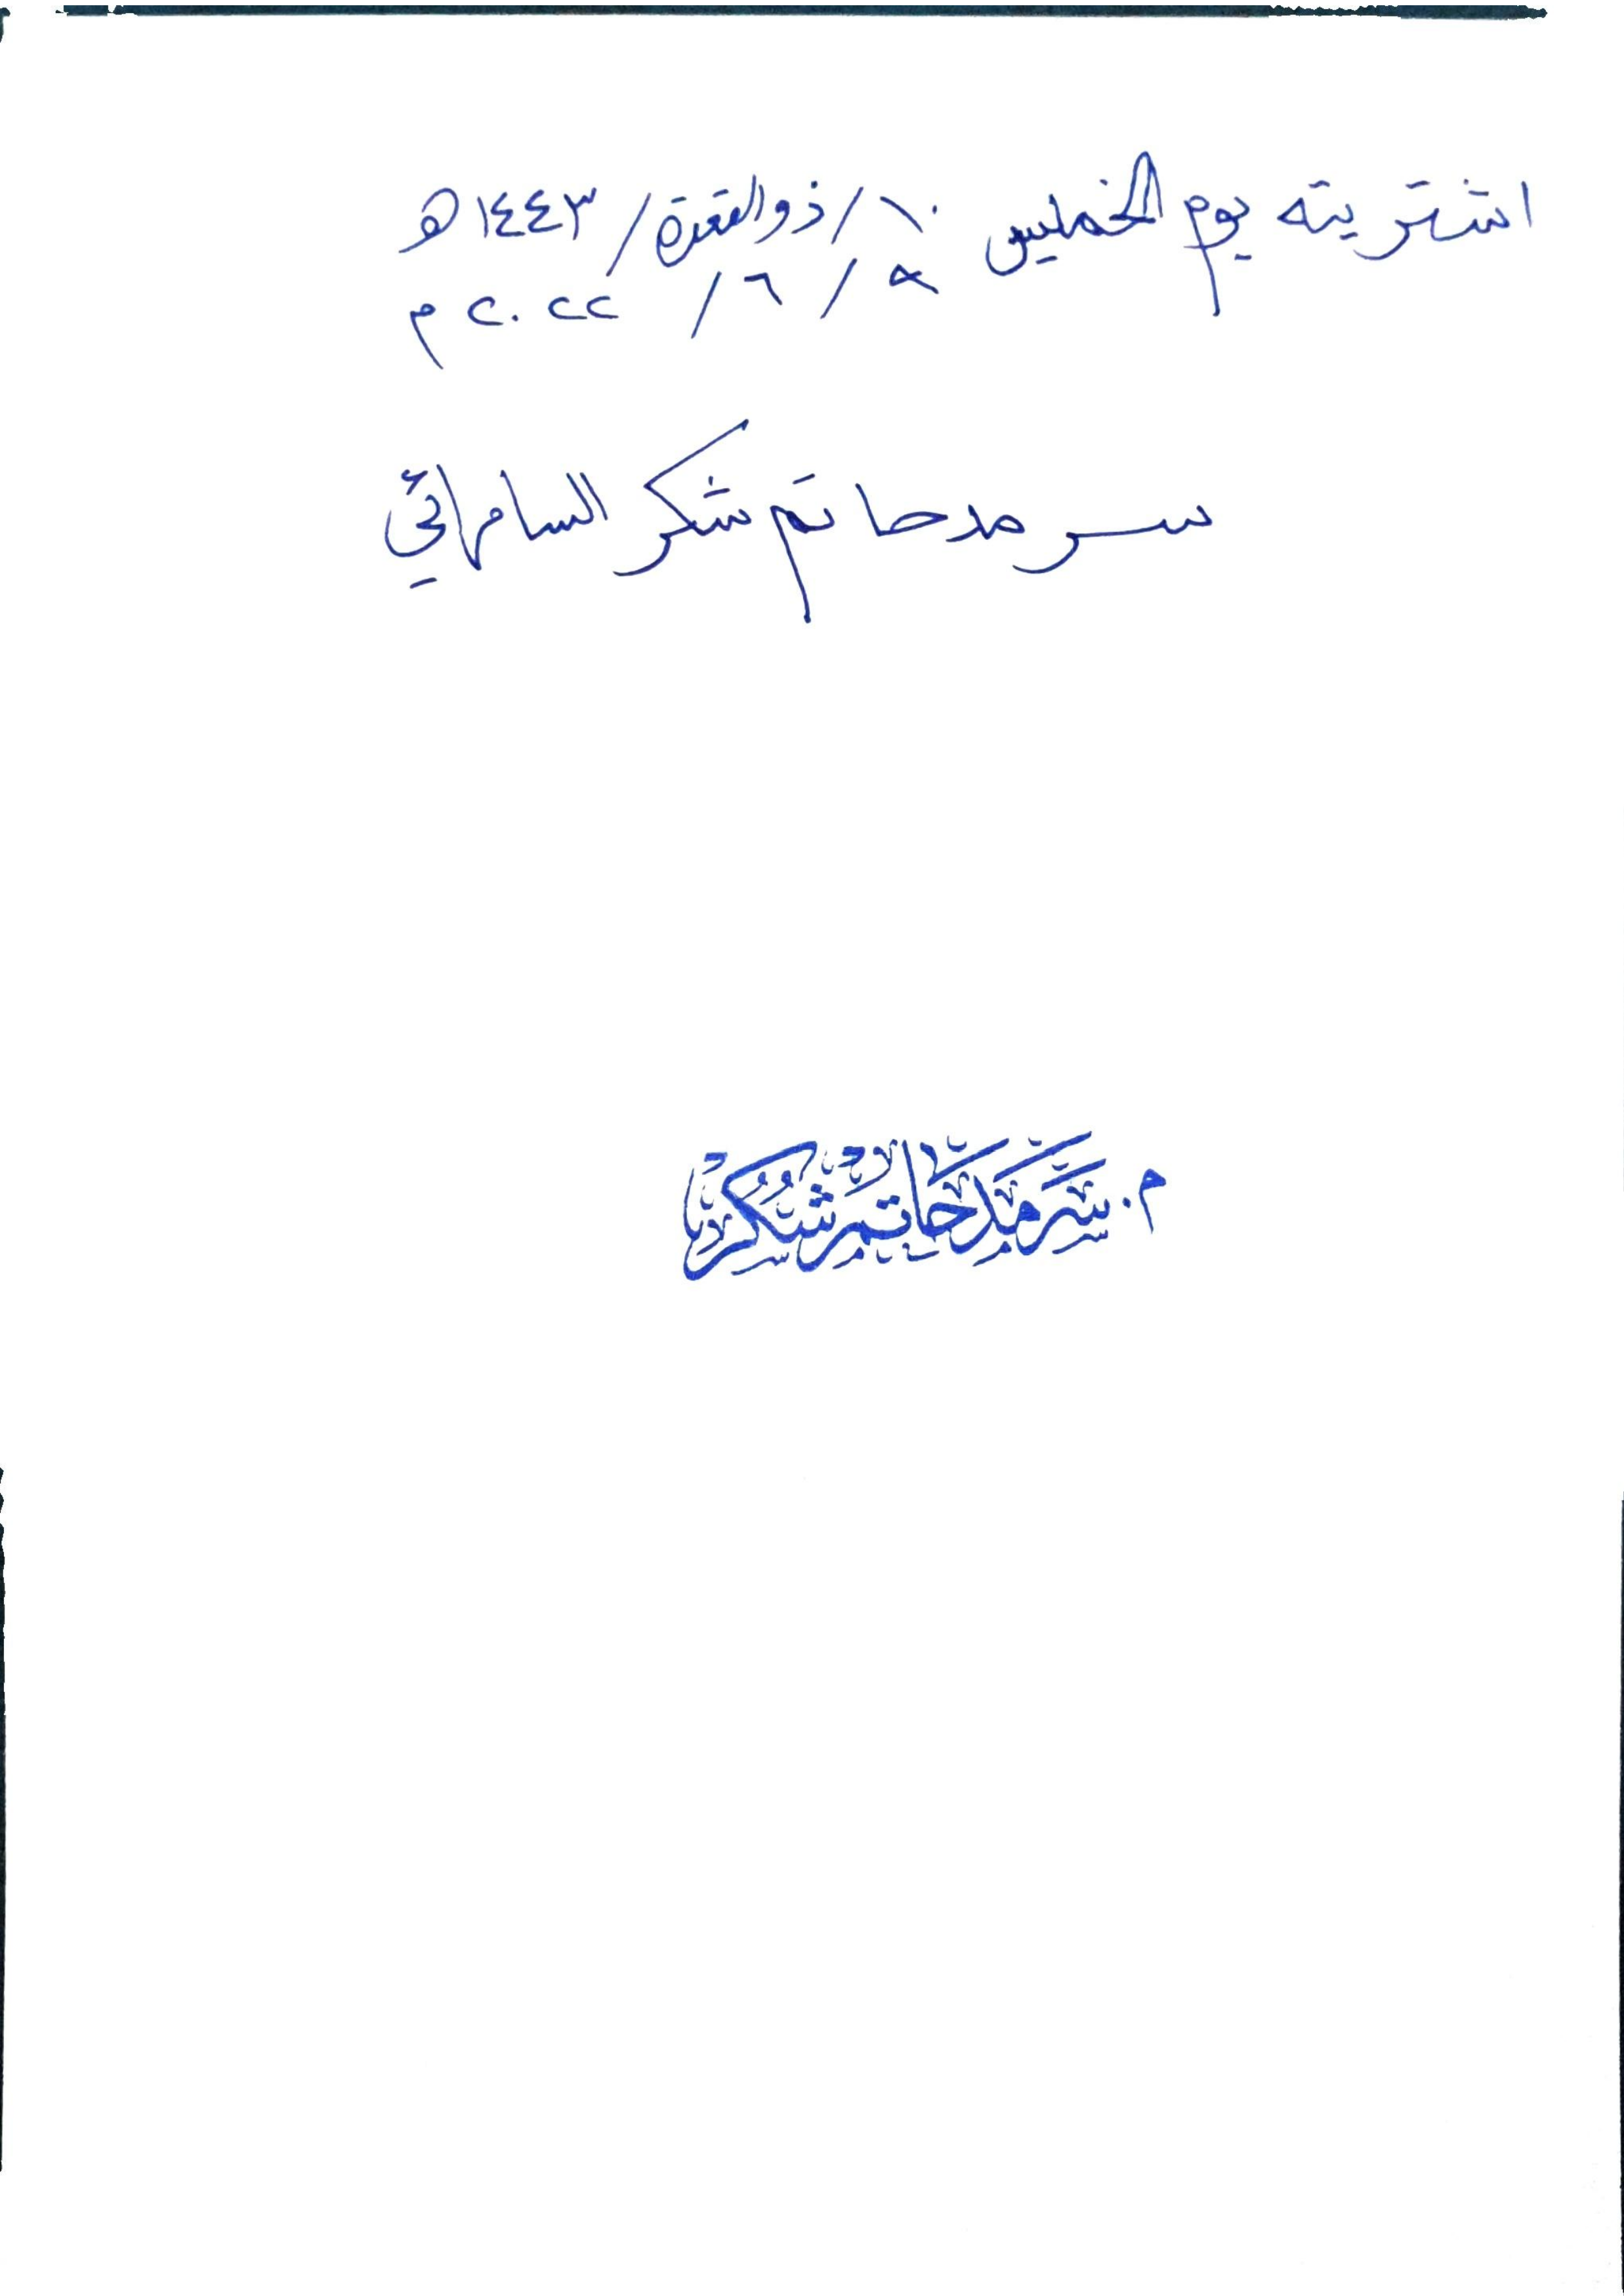 اشتريته يوم الخميس ١٠/ذو القعدة/١٤٤٣هـ
٩/٦/٢٠٢٢م
سرمد حاتم شكر السامرائي
م. سرمد حاتم شكر